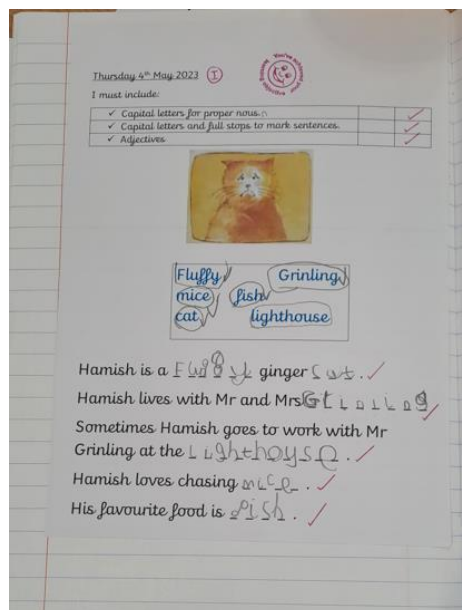 Thursday 4th May 2023 I
I must include:
✓ Capital letters for proper nous.n
✓ Capital letters and full stops to mark sentences.
✓ Adjectives
Fluffy Grinling
mice fish
cat lighthouse
Hamish is a Fluffy ginger cat.
Hamish lives with Mr and Mrs Grinling
Sometimes Hamish goes to work with Mr
Grinling at the Lighthouse.
Hamish loves chasing mice.
His favourite food is fish.